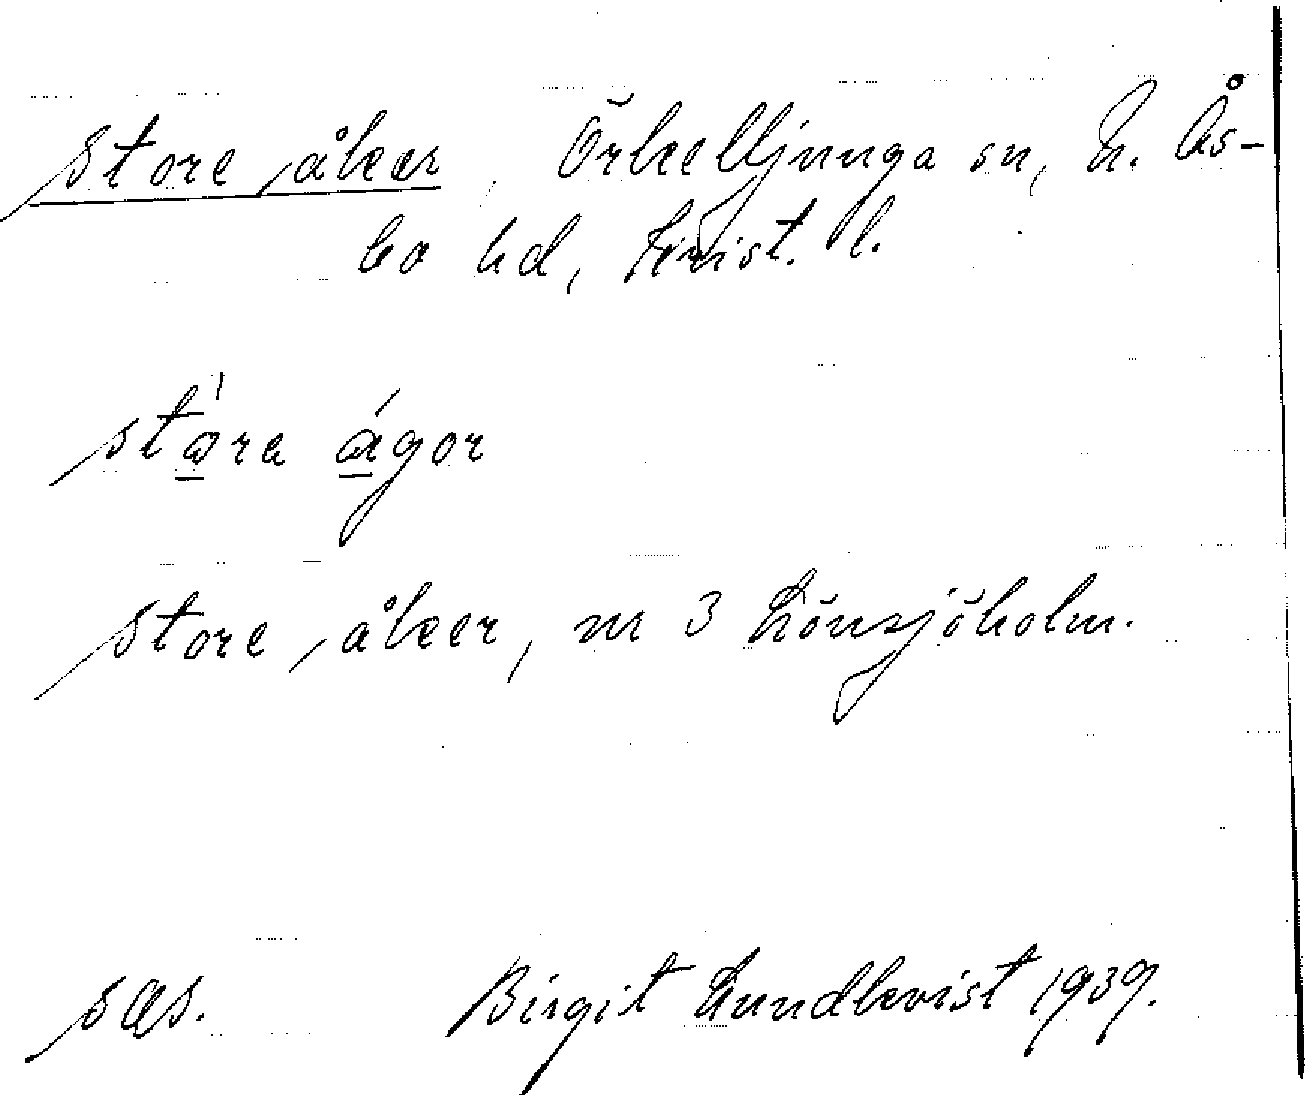 Store åker, Örkelljunga sn, N. Ås-
bo hd, Krist. l.
stơra ágor
Store åker, nr 3 Lönsjöholm.
sas. Birgit Lundkvist 1939.